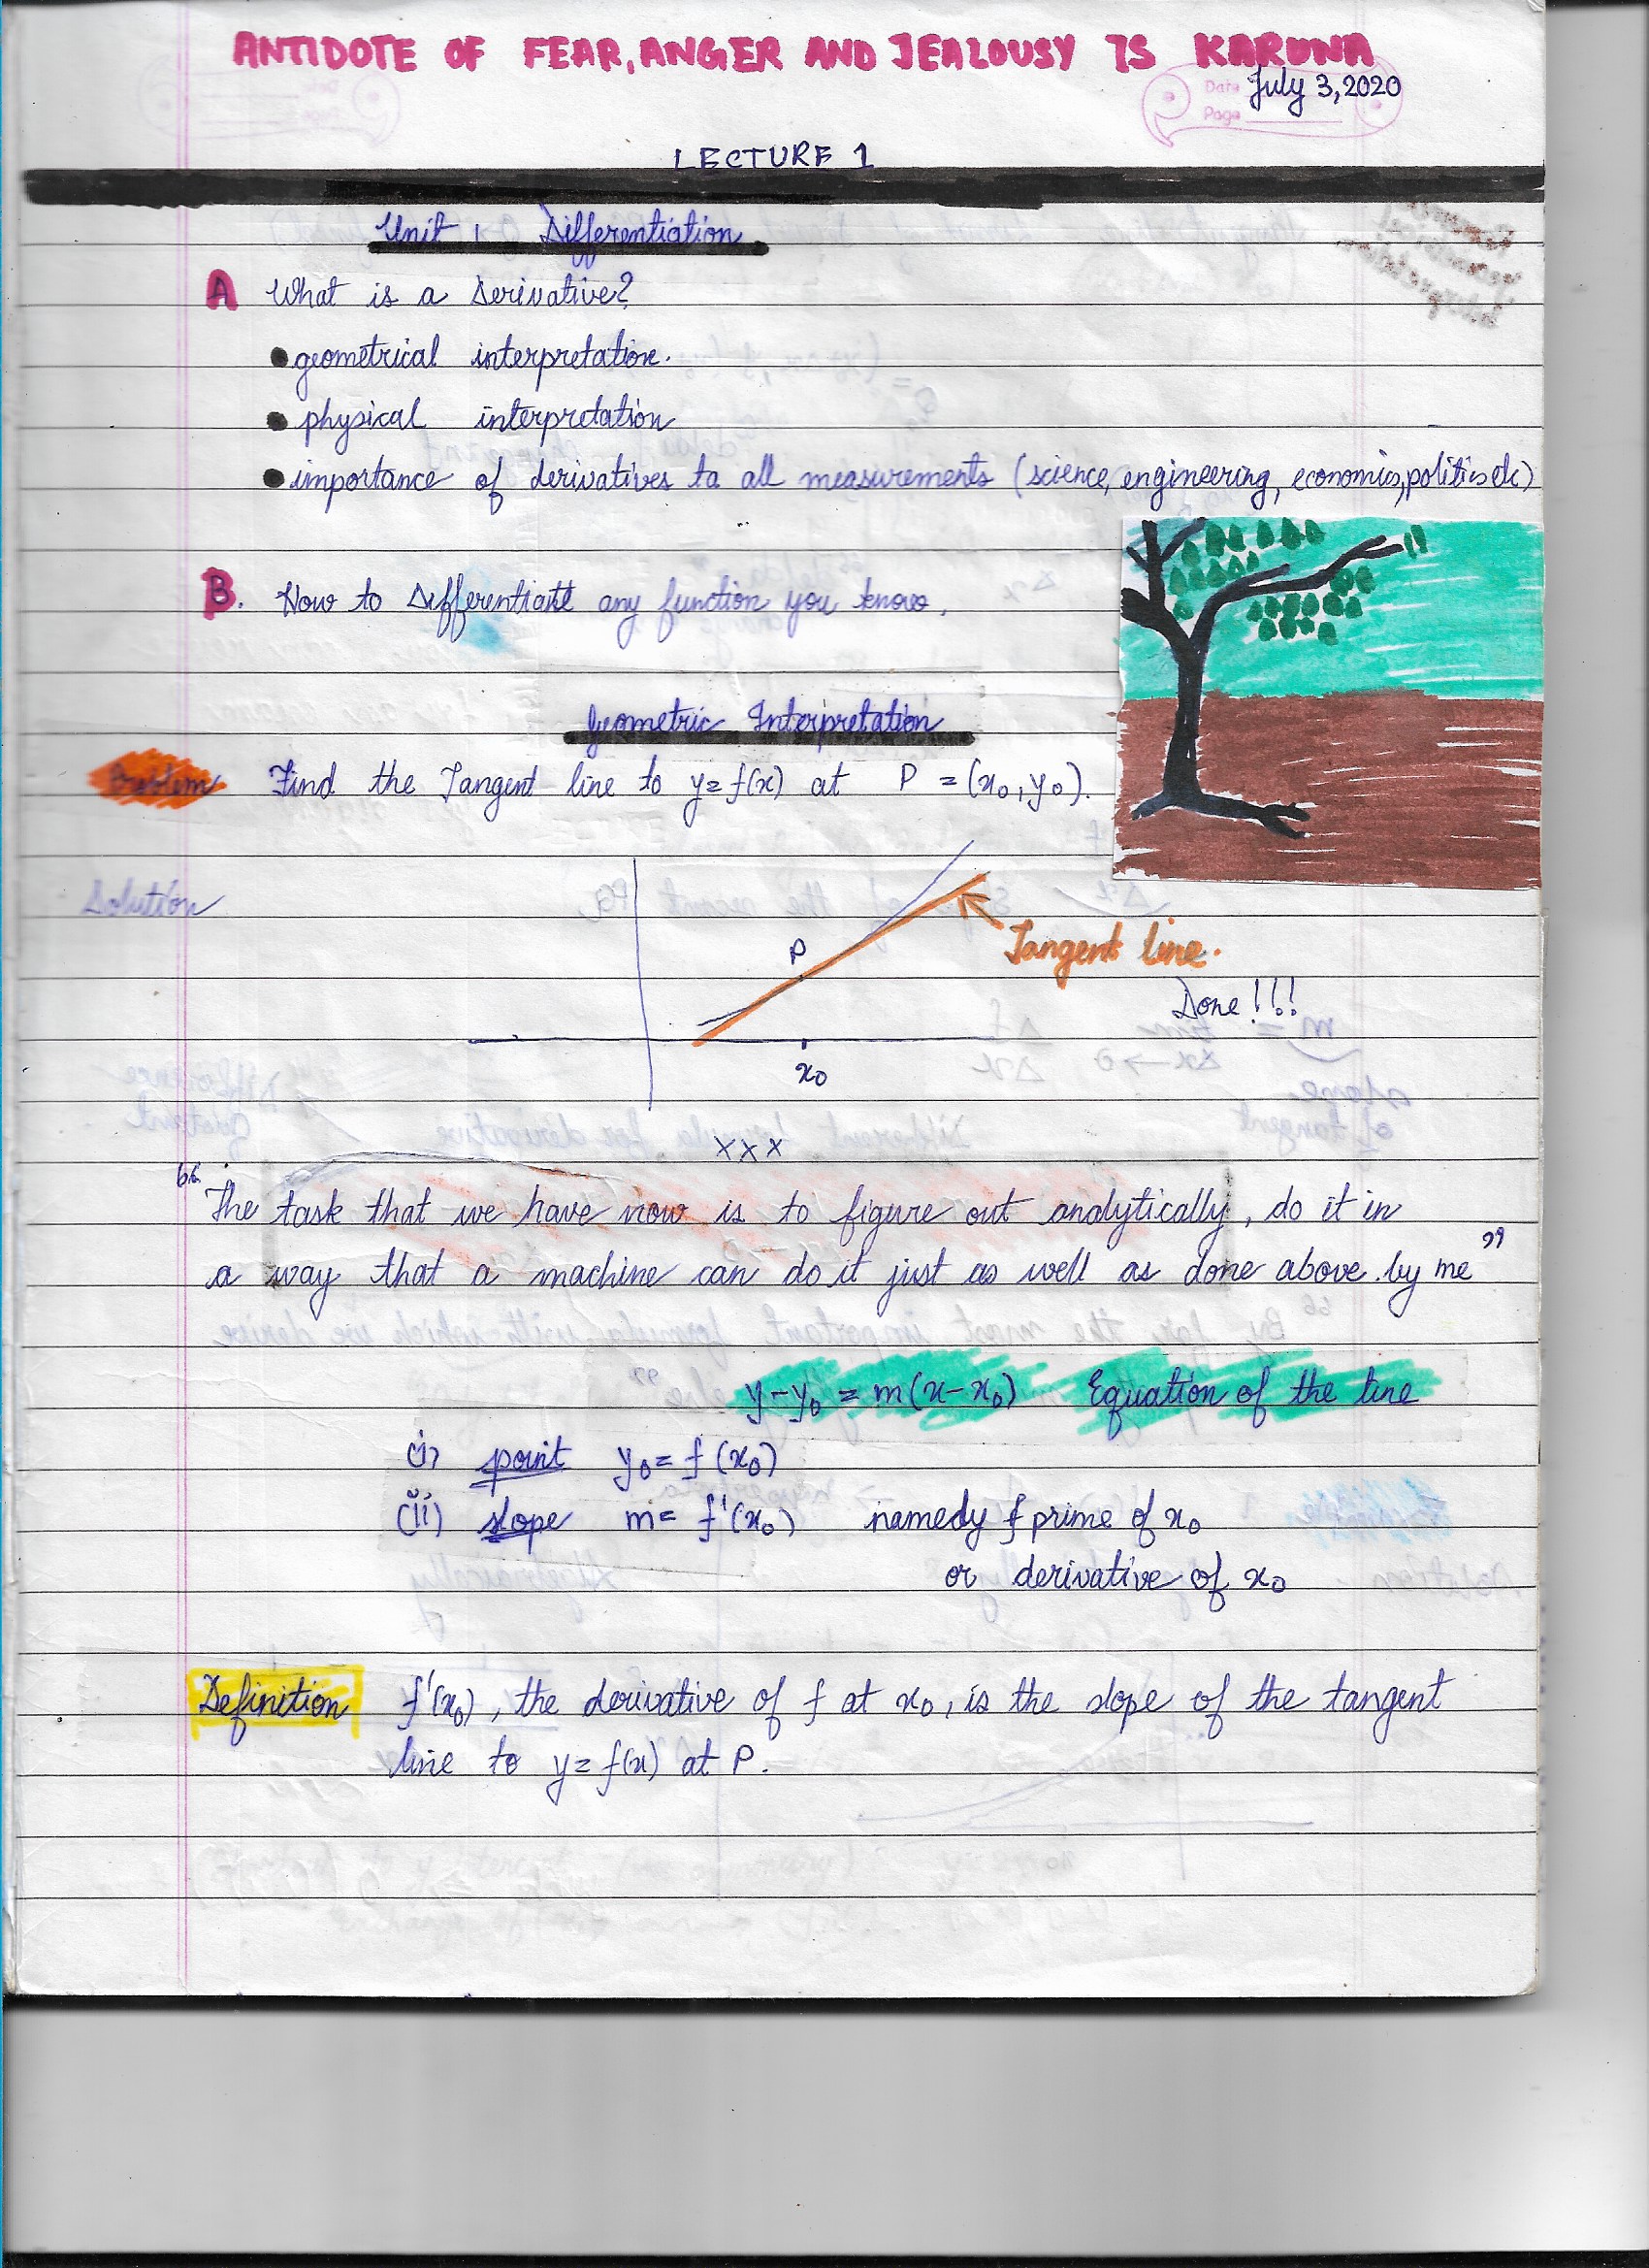 ANTIDOTE OF FEAR, ANGER AND JEALOUSY IS KARUNA
Date July 3, 2020
Page
LECTURE 1
Unit 1 Differentiation
A What is a Derivative?
• geometrical interpretation.
• physical interpretation
• importance of derivatives to all measurements (science, engineering, economics, politics etc)
B. How to Differentiate any function you know.
Geometric Interpretation
Problem Find the Tangent line to y = f(x) at P = (x₀, y₀).
Solution
P
Tangent line.
Done!!!
x₀
x x x
“The task that we have now is to figure out analytically, do it in
a way that a machine can do it just as well as done above by me”
y - y₀ = m(x - x₀) Equation of the line
(i) point y₀ = f(x₀)
(ii) slope m = f'(x₀) namely f prime of x₀
or derivative of x₀
Definition f'(x₀), the derivative of f at x₀, is the slope of the tangent
line to y = f(x) at P.